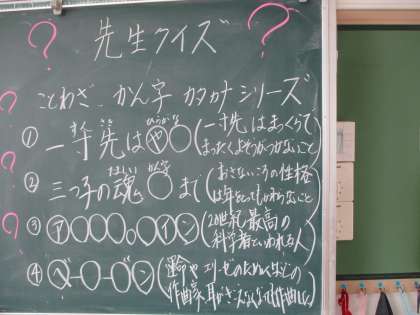 先生クイズ
ことわざ、かん字 カタカナシリーズ
① 一寸先は や○ (一寸先はまっくらで
すん さき ひらがな
まったくよそうがつかないこと)
② 三つ子の魂 ○まで (おさないころの性格
たましい かん字
は年をとってもかわらないこと)
③ ア○○○○。○イン (20世紀最高の
科学者といわれる人)
④ ベー○ーベン (運命やエリーゼのために
作曲家 耳がきこえなくなって作曲